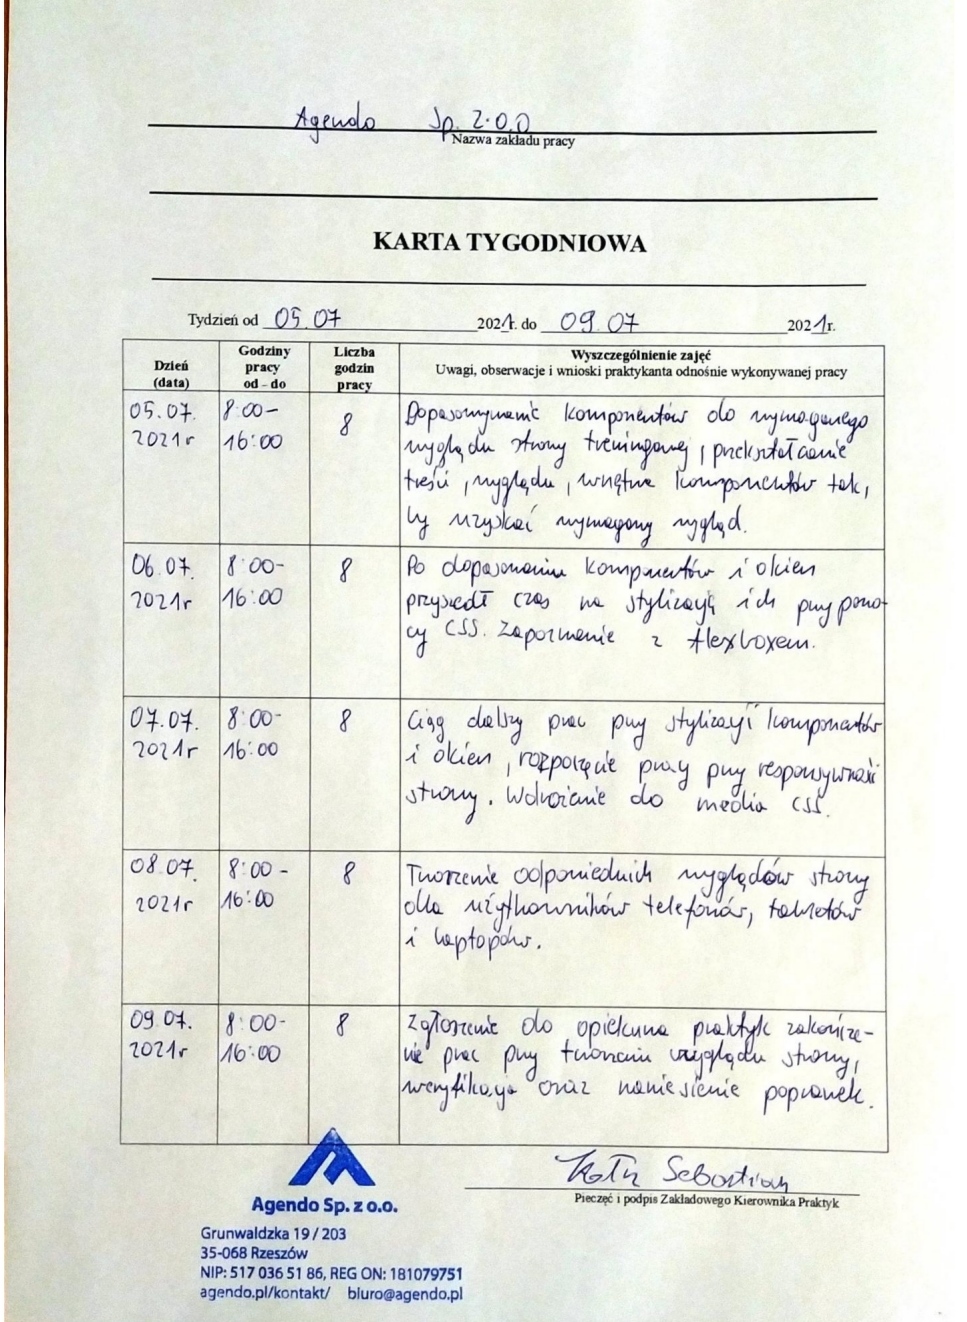 Agendo Sp. z.o.o
Nazwa zakładu pracy
KARTA TYGODNIOWA
Tydzień od 05.07 2021r. do 09.07 2021r.
Dzień (data) Godziny pracy od - do Liczba godzin pracy Wyszczególnienie zajęć
Uwagi, obserwacje i wnioski praktykanta odnośnie wykonywanej pracy
05.07. 8:00- 8 Dopasowywanie komponentów do wymaganego
2021r 16:00 wyglądu strony treningowej, przekształcanie
treści, wyglądu, wnętrza komponentów tak,
by uzyskać wymagany wygląd.
06.07. 8:00- 8 Po dopasowaniu komponentów i okien
2021r 16:00 przyszedł czas na stylizację ich przy pomo-
cy CSS. Zapoznanie z flexboxem.
07.07. 8:00- 8 Ciąg dalszy prac przy stylizacji komponentów
2021r 16:00 i okien, rozpoczęcie pracy przy responsywności
strony. Wdrożenie do media CSS.
08.07. 8:00- 8 Tworzenie odpowiednich wyglądów strony
2021r 16:00 dla użytkowników telefonów, tabletów
i laptopów.
09.07. 8:00- 8 Zgłoszenie do opiekuna praktyk zakończe-
2021r 16:00 nie prac przy tworzeniu wyglądu strony,
weryfikacja oraz naniesienie poprawek.
Sebastian
Pieczęć i podpis Zakładowego Kierownika Praktyk
Agendo Sp. z o.o.
Grunwaldzka 19 / 203
35-068 Rzeszów
NIP: 517 036 51 86, REG ON: 181079751
agendo.pl/kontakt/ biuro@agendo.pl